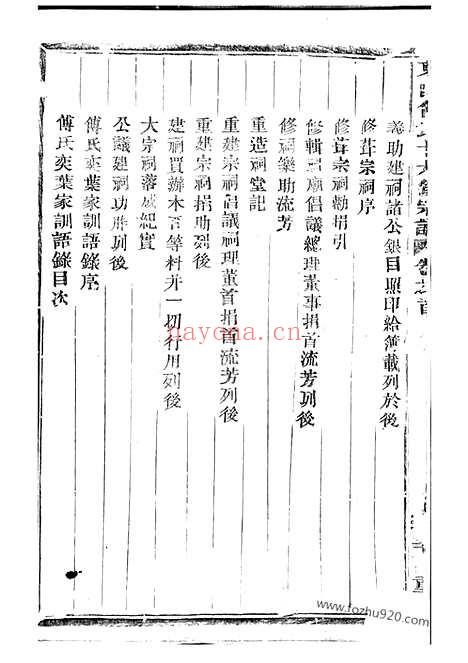 義助建祠諸公銀目照印給簿載列於後
修葺宗祠序
修葺宗祠勸捐引
修輯祠廟倡議總理董事捐首流芳列後
修祠樂助流芳
重造祠堂記
重建宗祠倡議祠理董首捐首流芳列後
重建宗祠捐助列後
建祠買辦木石等料并一切行用列後
大宗祠落成紀實
公議建祠功胙列後
傅氏奕葉家訓語錄序
傅氏奕葉家訓語錄目次
hayona.cn
www.fozhu920.com